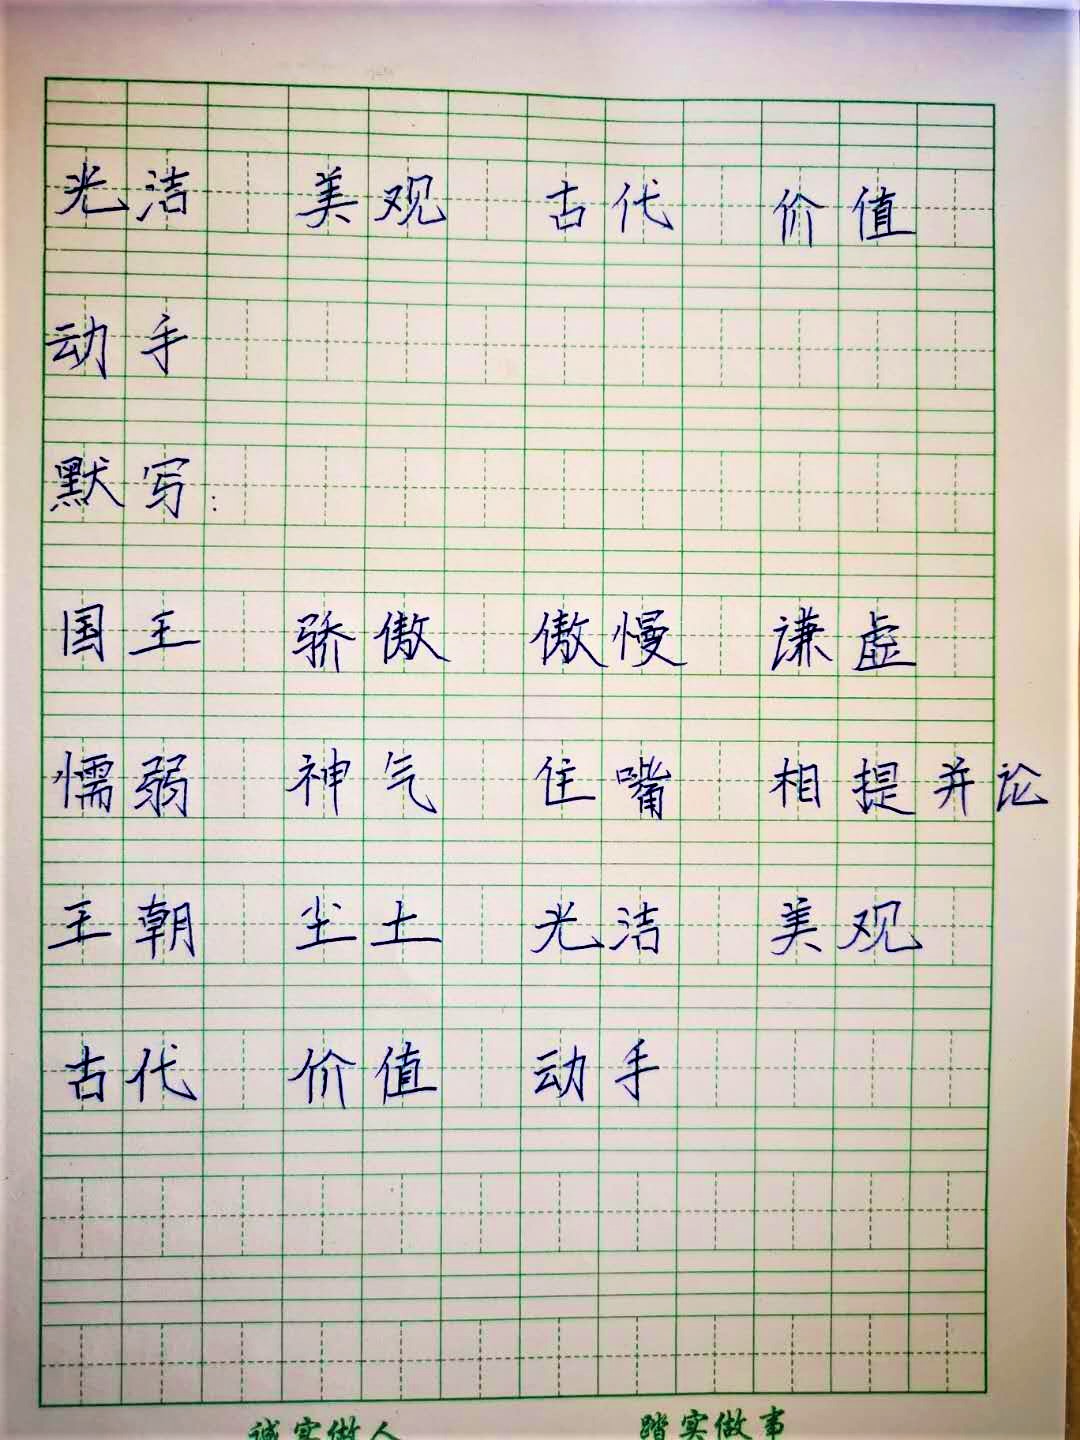 光洁 美观 古代 价值
动手
默写:
国王 骄傲 傲慢 谦虚
懦弱 神气 住嘴 相提并论
王朝 尘土 光洁 美观
古代 价值 动手
诚实做人 踏实做事